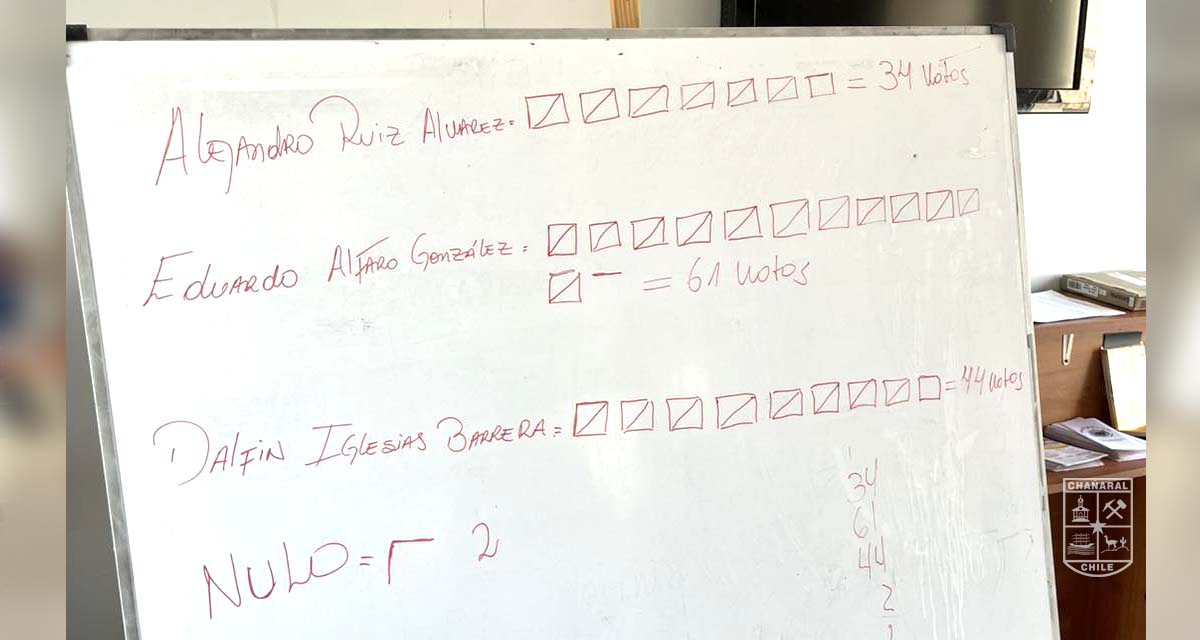 Alejandro Ruiz Alvarez = = 34 Votos
Eduardo Alfaro González =
= 61 Votos
Dalfin Iglesias Barrera = = 44 Votos
NULO = 2
34
61
44
2
CHAÑARAL
CHILE